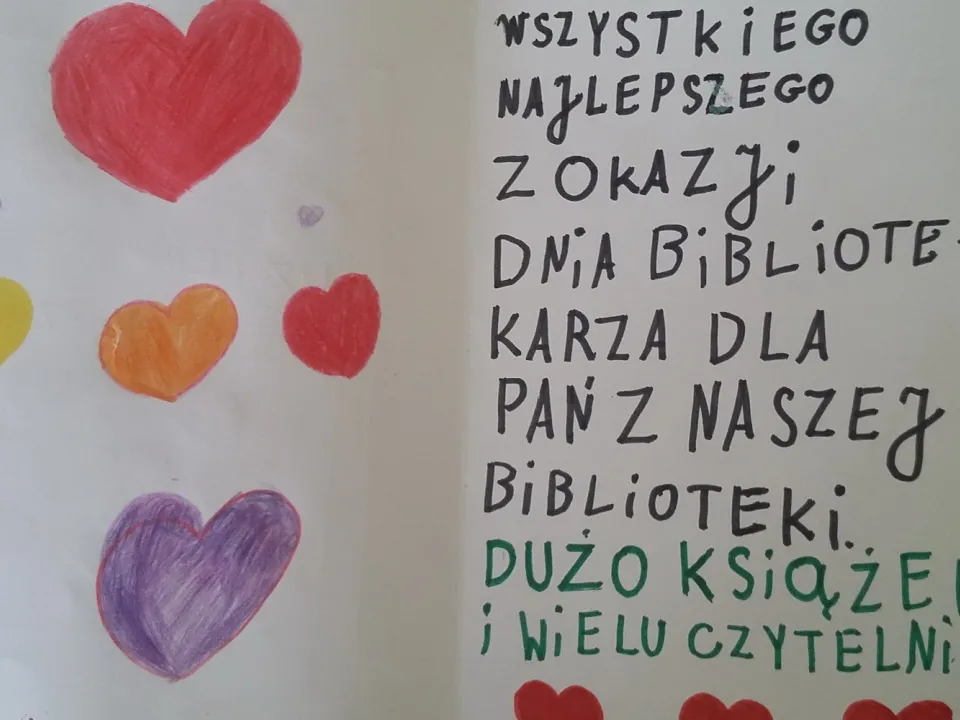 WSZYSTKIEGO
NAJLEPSZEGO
Z OKAZJI
DNIA BIBLIOTE-
KARZA DLA
PAŃ Z NASZEJ
BIBLIOTEKI.
DUŻO KSIĄŻE
I WIELU CZYTELNI